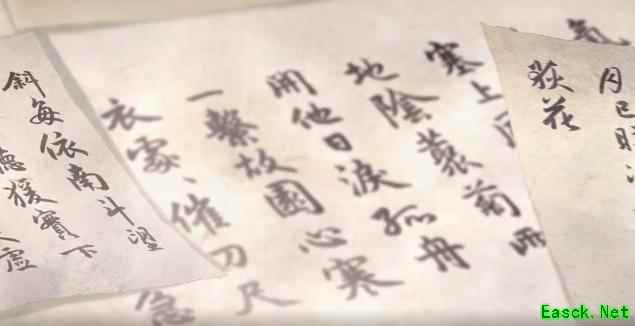 氣
月已映
荻花
塞上
地陰叢菊兩
開他日淚孤舟
一繫故園心寒
衣處、催刀尺
急
斜每依南斗望
聽猿實下
虛
Easck.Net